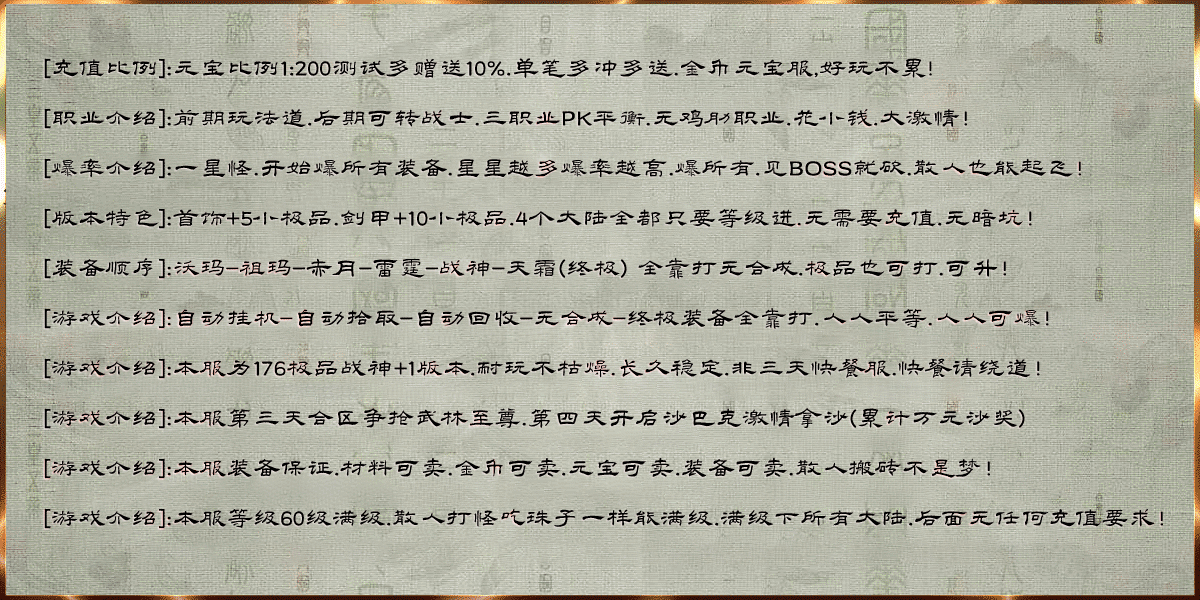 [充值比例]:元宝比例1:200测试多赠送10%.单笔多冲多送.金币元宝服,好玩不累!
[职业介绍]:前期玩法道.后期可转战士.三职业PK平衡.无鸡肋职业.花小钱.大激情!
[爆率介绍]:一星怪.开始爆所有装备.星星越多爆率越高.爆所有.见BOSS就砍.散人也能起飞!
[版本特色]:首饰+5小极品.剑甲+10小极品.4个大陆全都只要等级进.无需要充值.无暗坑!
[装备顺序]:沃玛-祖玛-赤月-雷霆-战神-天霜(终极) 全靠打无合成.极品也可打.可升!
[游戏介绍]:自动挂机-自动拾取-自动回收-无合成-终极装备全靠打.人人平等.人人可爆!
[游戏介绍]:本服为176极品战神+1版本.耐玩不枯燥.长久稳定.非三天快餐服.快餐请绕道!
[游戏介绍]:本服第三天合区争抢武林至尊.第四天开启沙巴克激情拿沙(累计万元沙奖)
[游戏介绍]:本服装备保证.材料可卖.金币可卖.元宝可卖.装备可卖.散人搬砖不是梦!
[游戏介绍]:本服等级60级满级.散人打怪吃珠子一样能满级.满级下所有大陆.后面无任何充值要求!